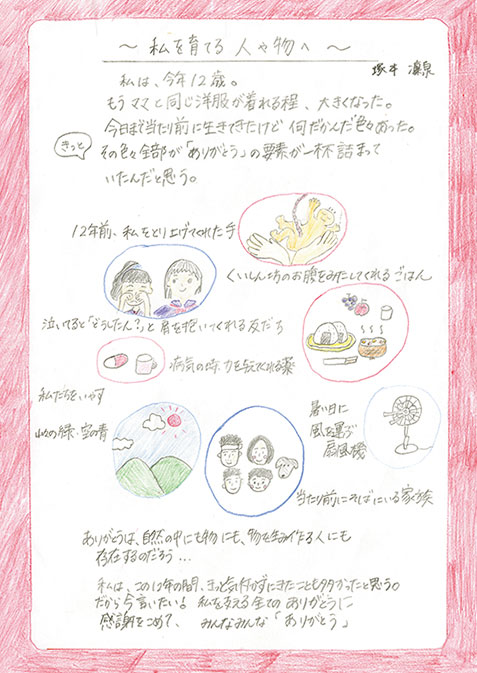 ～ 私を育てる 人や物へ ～
塚本 凜泉
私は、今年12歳。
もうママと同じ洋服が着れる程、大きくなった。
今日まで当たり前に生きてきたけど 何だかんだ色々あった。
きっと
その色々全部が「ありがとう」の要素が一杯詰まって
いたんだと思う。
12年前、私をとり上げてくれた手
くいしん坊のお腹をみたしてくれる ごはん
泣いてると「どうしたん？」と 肩を抱いてくれる友だち
病気の時、力を与えてくれる薬
私たちをいやす
山々の緑・空の青
暑い日に
風を運ぶ
扇風機
当たり前にそばにいる家族
ありがとうは、自然の中にも物にも、物を生み作る人にも
存在するのだろう…
私は、この12年の間、きっと気付かずにきたことも多かったと思う。
だから今言いたいよ 私を支える全ての ありがとうに
感謝をこめて、 みんなみんな「ありがとう」